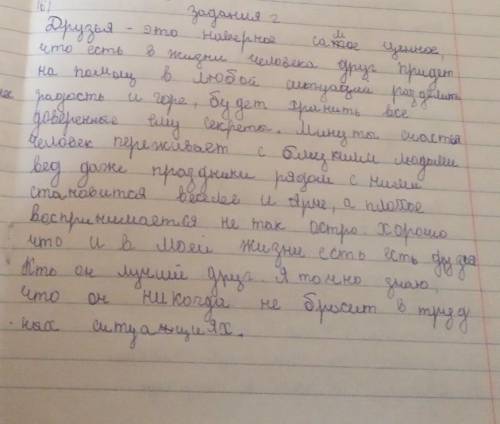 б)
задания 2
Друзья - это наверное самое ценное,
что есть в жизни человека друг придет
на помощ в любой ситуации разделит
радость и горе, будет хранить все
доверенные ему секреты. Минуты счастья
человек переживает с близкими людьми
вед даже праздники рядом с ними
становится веселее и ярче, а плохое
воспринимается не так остро. хорошо
что и в моей жизни есть есть друзья
Кто он лучший друг. Я точно знаю,
что он никогда не бросит в труд
ных ситуациях.